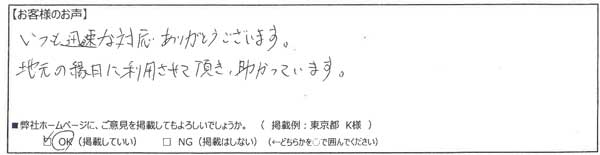 【お客様のお声】
いつも迅速な対応ありがとうございます。
地元の縁日に利用させて頂き、助かっています。
■弊社ホームページに、ご意見を掲載してもよろしいでしょうか。 （ 掲載例：東京都 K様 ）
☑ OK（掲載していい） □ NG（掲載はしない）（←どちらかを○で囲んでください）